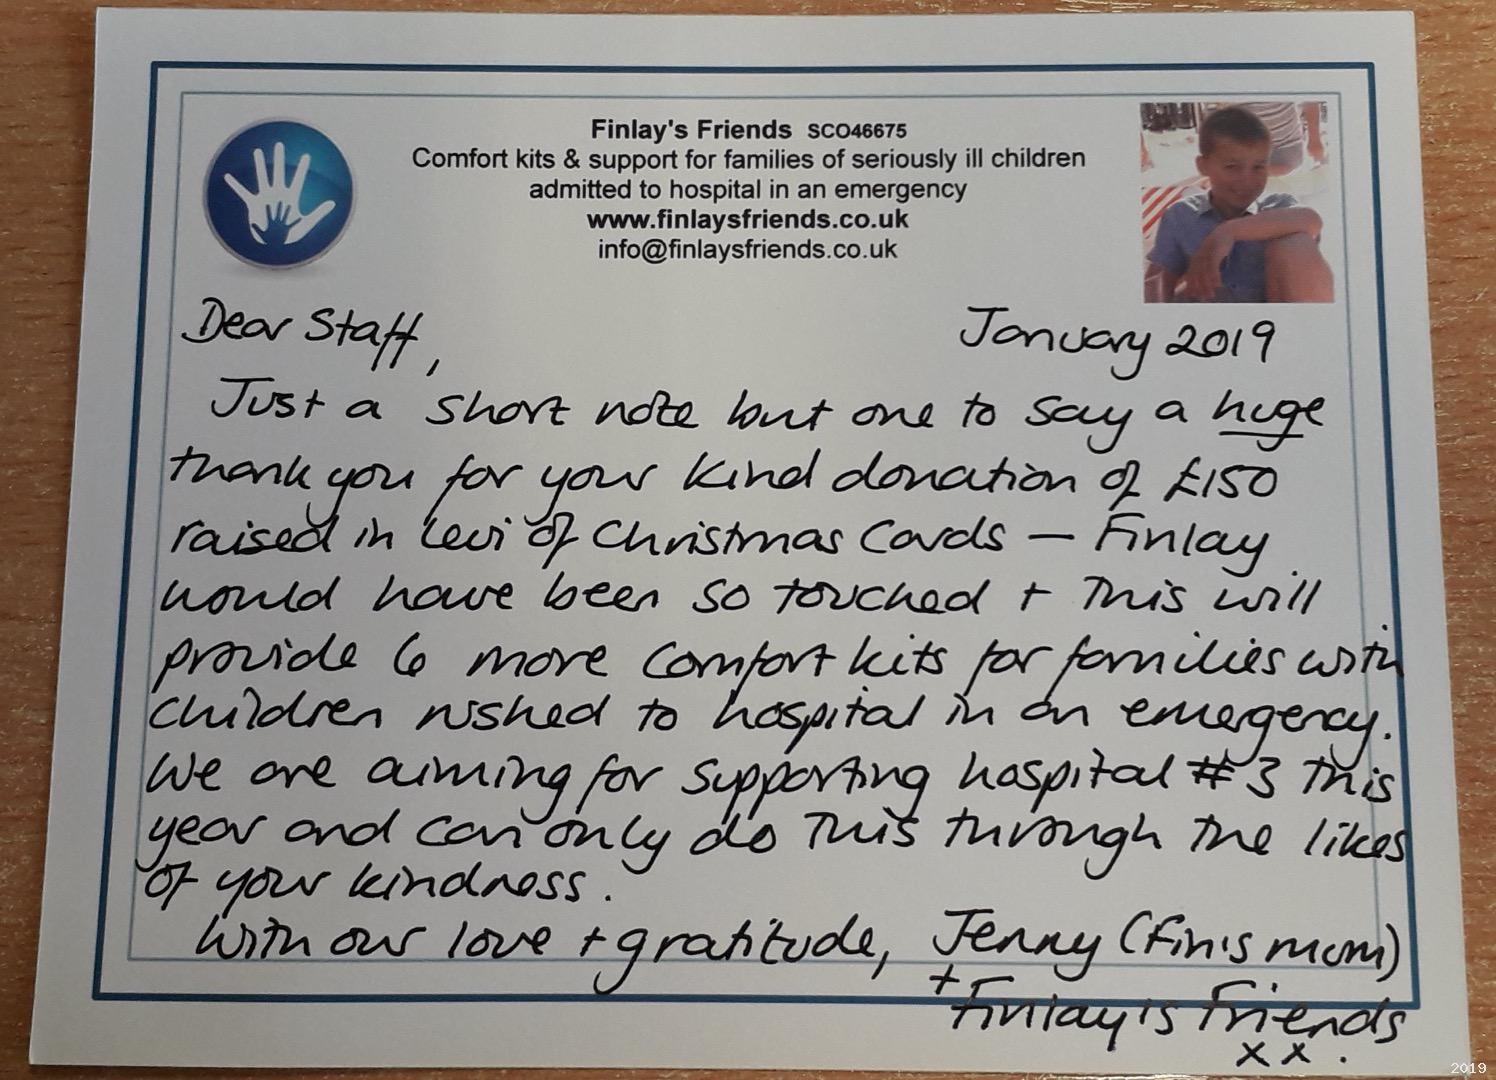 Finlay's Friends SCO46675
Comfort kits & support for families of seriously ill children
admitted to hospital in an emergency
www.finlaysfriends.co.uk
info@finlaysfriends.co.uk
Dear Staff,
January 2019
Just a short note but one to say a huge
thank you for your kind donation of £150
raised in leui of Christmas Cards – Finlay
would have been so touched + this will
provide 6 more comfort kits for families with
children rushed to hospital in an emergency.
We are aiming for supporting hospital #3 this
year and can only do this through the likes
of your kindness.
With our love + gratitude, Jenny (Fin's mum)
+ Finlay's Friends
x x .
2019